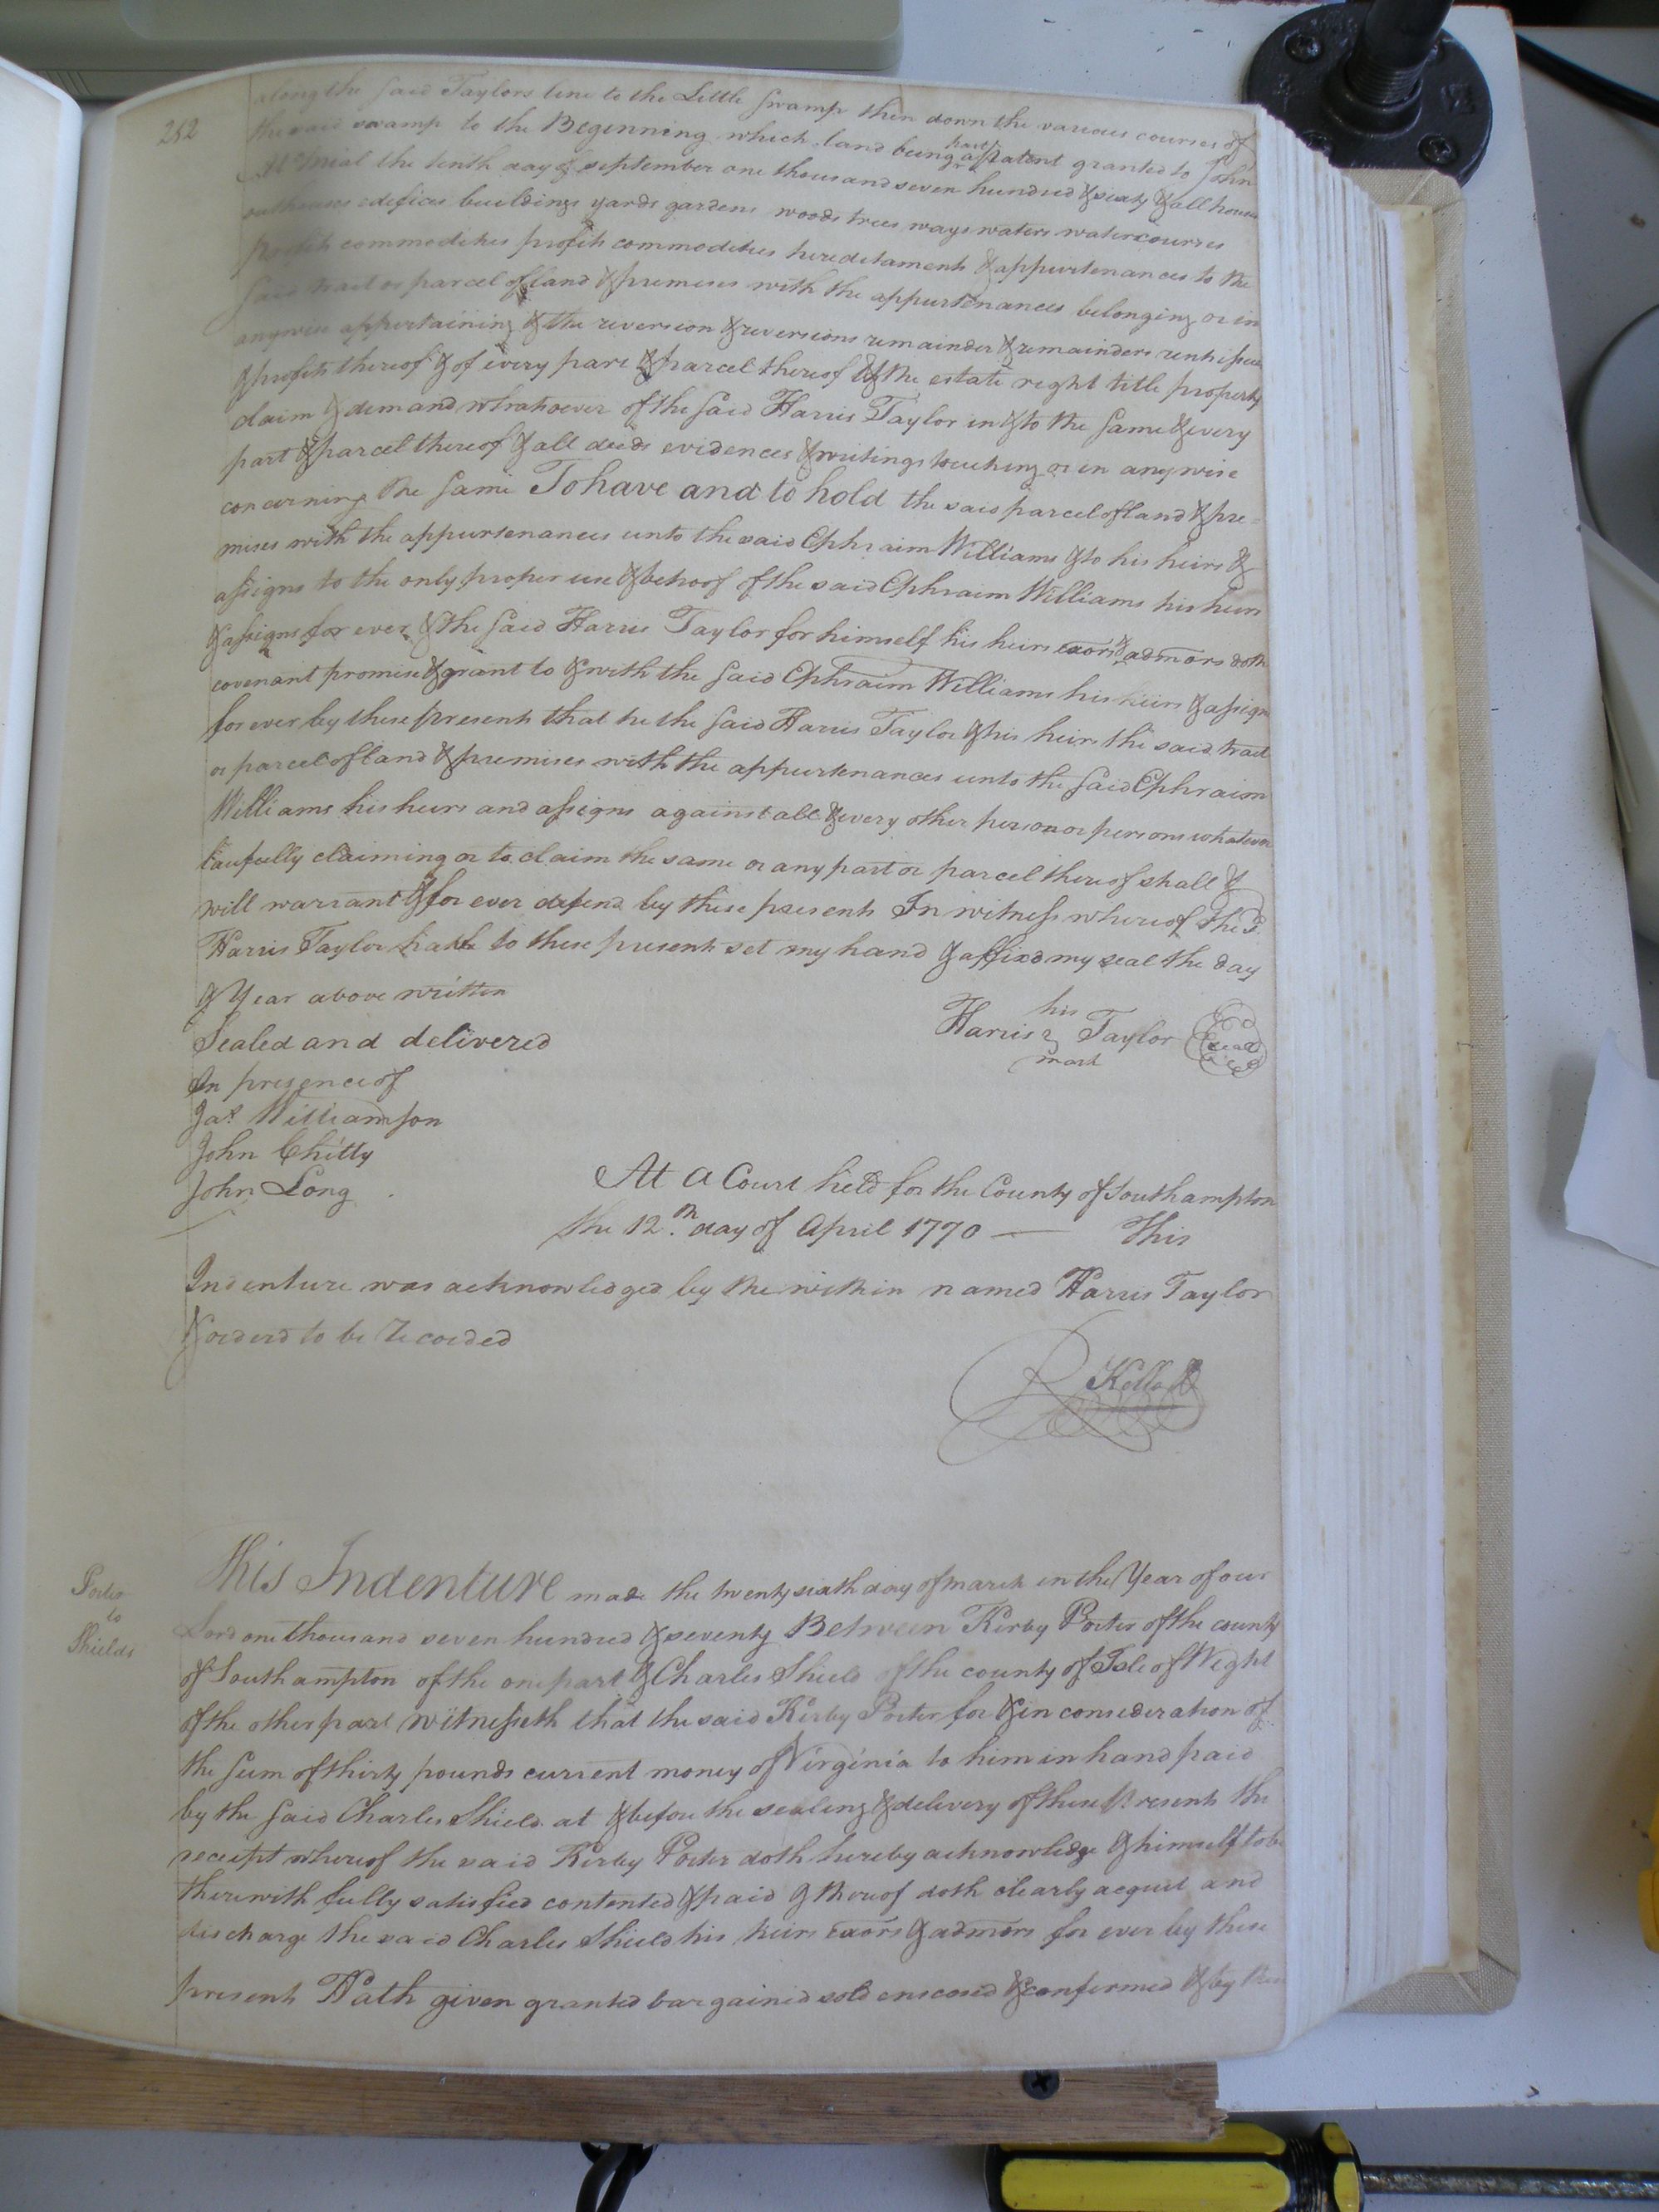 252
along the said Taylors line to the Little Swamp then down the various courses of
the said swamp to the Beginning which land being part of a patent granted to John
the tenth day of september one thousand seven hundred & sixty & all houses
outhouses edifices buildings yards gardens woods trees ways waters watercourses
profits commodities profits commodities hereditaments & appurtenances to the
said tract or parcel of land & premises with the appurtenances belonging or in
anywise appertaining & the reversion & reversions remainder & remainders rents issues
& profits thereof & of every part & parcel thereof & the estate right title property
claim & demand whatsoever of the said Harris Taylor in & to the same & every
part & parcel thereof & all deeds evidences & writings touching or in any wise
concerning the same To have and to hold the said parcel of land & pre=
mises with the appurtenances unto the said Ephraim Williams & to his heirs &
assigns to the only proper use & behoof of the said Ephraim Williams his heirs
& assigns for ever & the said Harris Taylor for himself his heirs exors & admors doth
covenant promise & grant to & with the said Ephraim Williams his heirs & assigns
for ever by these presents that he the said Harris Taylor & his heirs the said tract
or parcel of land & premises with the appurtenances unto the said Ephraim
Williams his heirs and assigns against all & every other person or persons whatever
laufully claiming or to claim the same or any part or parcel thereof shall &
will warrant & for ever defend by these presents In witness whereof the Sd.
Harris Taylor hath to these presents set my hand & affixd my seal the day
& Year above written
his
Harris Taylor Seal
mark
Sealed and delivered
In presence of
Jas. Williamson
John Chitty
John Long
At a Court held for the County of Southampton
the 12.th day of April 1770 — This
Indenture was acknowledged by the within named Harris Taylor
& orderd to be Recorded
R Kello
Porter
to
Shields
This Indenture made the twenty sixth day of march in the Year of our
Lord one thousand seven hundred & seventy Between Kirby Porter of the county
of Southampton of the one part & Charles Shield of the county of Isle of Wight
of the other part witnesseth that the said Kirby Porter for & in consideration of
the sum of thirty pounds current money of Virginia to him in hand paid
by the said Charles Shield at & before the sealing & delivery of these Presents the
receipt whereof the said Kirby Porter doth hereby acknowledge & himself to be
therewith fully satisfied contented & paid & thereof doth clearly acquit and
discharge the said Charles Shield his heirs exors & admors for ever by these
presents Hath given granted bargained sold enfeoffed & confirmed & by these